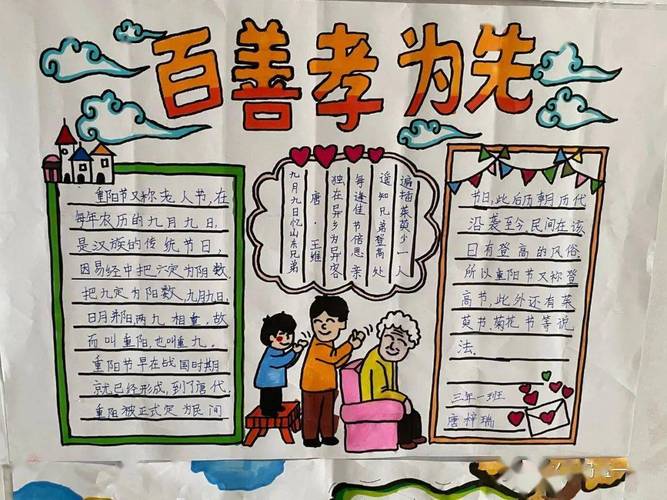 百善孝为先
重阳节又称老人节,在
每年农历的九月九日,
是汉族的传统节日,
因易经中把六定为阴数
把九定为阳数,九月九日,
日月并阳两九相重,故
而叫重阳,也叫重九。
重阳节早在战国时期
就已经形成,到了唐代
重阳被正式定为民间
九月九日忆山东兄弟
唐·王维
独在异乡为异客
每逢佳节倍思亲
遥知兄弟登高处
遍插茱萸少一人
节日,此后历朝历代
沿袭至今,民间在该
日有登高的风俗,
所以重阳节又称登
高节,此外还有茱
萸节、菊花节等说
法.
三年一班
唐梓瑞